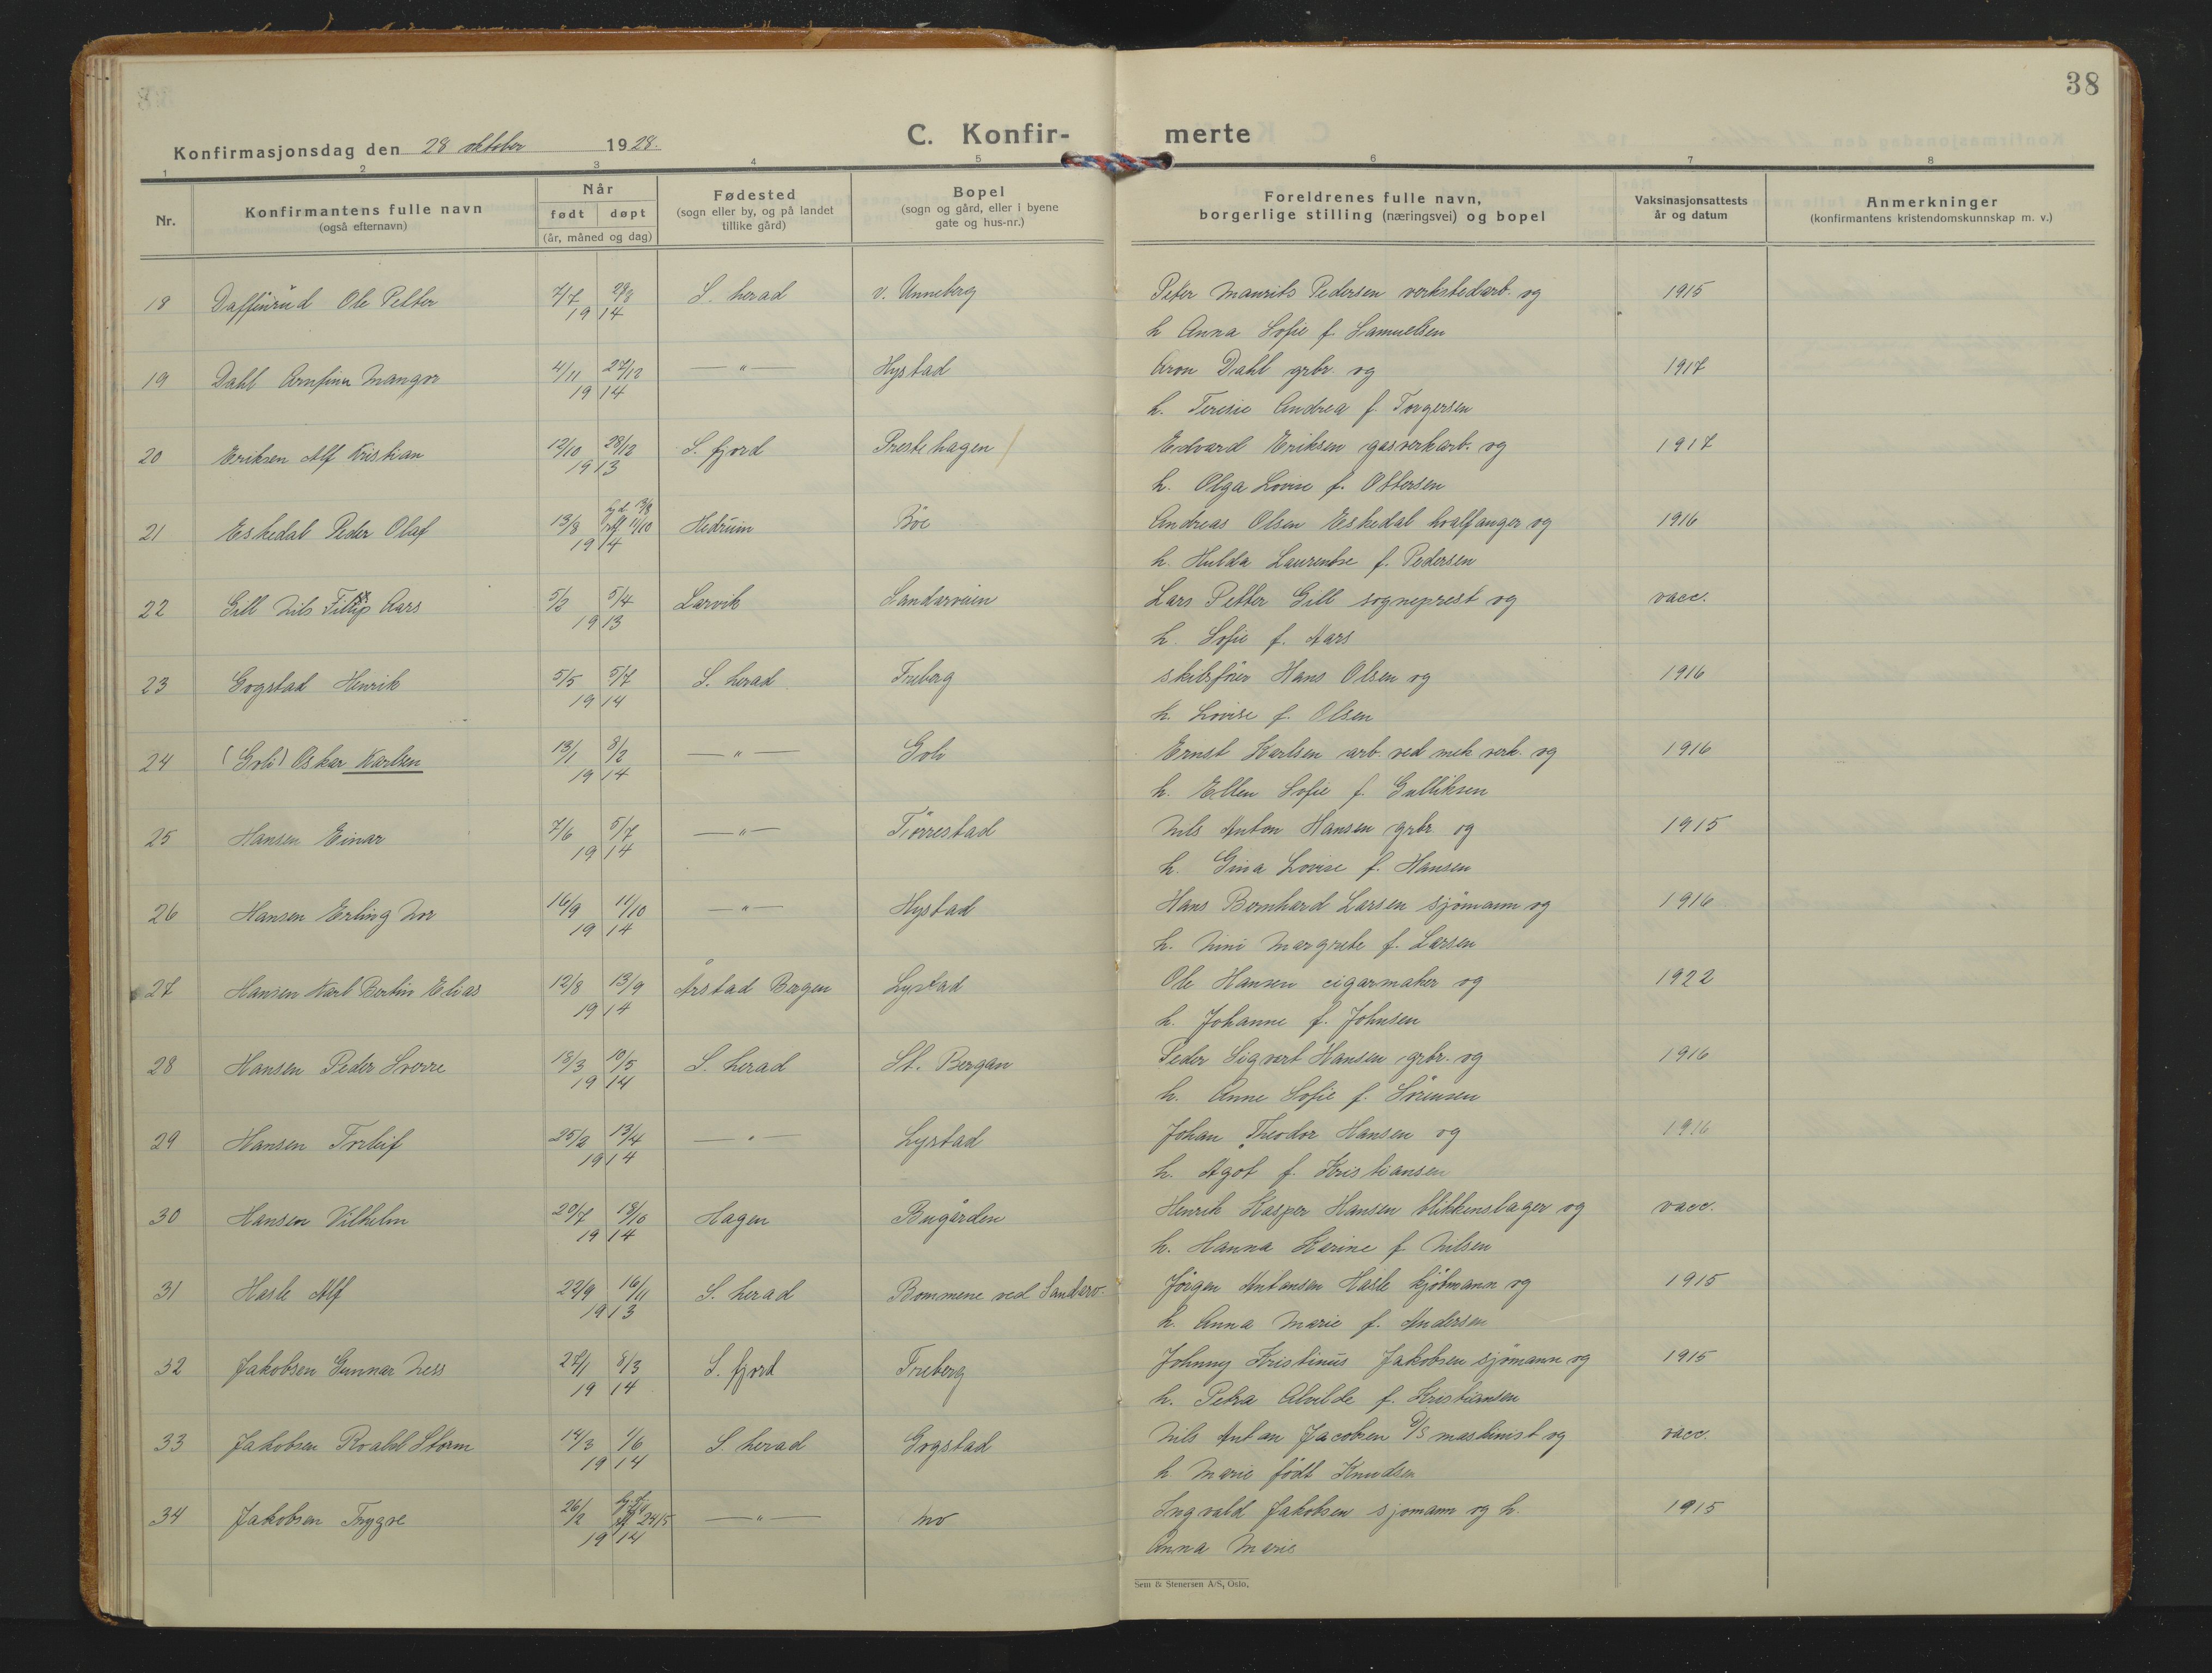 38
Konfirmasjonsdag den 28 oktober 1928.
C. Konfir- merte
1 2 3 4 5 6 7 8
Nr.
Konfirmantens fulle navn
(også efternavn)
Når
født døpt
(år, måned og dag)
Fødested
(sogn eller by, og på landet
tillike gård)
Bopel
(sogn og gård, eller i byene
gate og hus-nr.)
Foreldrenes fulle navn,
borgerlige stilling (næringsvei) og bopel
Vaksinasjonsattests
år og datum
Anmerkninger
(konfirmantens kristendomskunnskap m. v.)
18 Daffinrud Ole Petter 7/7 S. herad v. Unneberg Peter Maurits Pedersen verkstedarb. og 1915
1914 h Anna Sofie f. Samuelsen
19 Dahl Arnfinn Mangor 4/11 27/12 —"— Hystad Aron Dahl grbr og 1917
1914 h. Teresie Andrea f. Torgersen
20 Eriksen Alf Kristian 12/10 28/12 S. fjord Prestehagen Edvard Eriksen gasverkarb. og 1917
1913 h. Olga Lovise f. Ottersen
21 Eskedal Peder Olaf 13/8 hj.d. 13/8 11/10 Hedrum Böe Andreas Olsen Eskedal hvalfanger og 1916
1914 h. Hulda Laurentse f. Pedersen
22 Gill Nils Fillip Aars 5/2 5/4 Larvik Sandarveien Lars Petter Gill sogneprest og vacc.
1913 h. Sofie f. Aars
23 Gogstad Henrik 5/5 5/7 S. herad Freberg skibsfører Hans Olsen og 1916
1914 h. Lovise f. Olsen
24 (Goli) Oskar Karlsen 13/1 8/2 —"— Goli Ernst Karlsen arb. ved mek verk. og 1916
1914 h. Ellen Sofie f. Gulliksen
25 Hansen Einar 7/6 5/7 —"— Tiörrestad Nils Anton Hansen grbr og 1915
1914 h. Gina Lovise f. Hansen
26 Hansen Erling Nor 16/9 11/10 —"— Hystad Hans Bernhard Larsen sjömann og 1916
1914 h. Nini Margrete f. Larsen
27 Hansen Karl Bertin Elias 12/8 13/9 Årstad Bergen Lystad Ole Hansen cigarmaker og 1922
1914 h. Johanne f. Johnsen
28 Hansen Peder Sverre 18/3 10/5 S. herad St. Bergan Peder Sigvert Hansen grbr. og 1916
1914 h. Anne Sofie f. Sörensen
29 Hansen Torleif 25/2 13/4 —"— Lystad Johan Theodor Hansen og 1916
1914 h. Agot f. Kristiansen
30 Hansen Vilhelm 20/7 18/10 Hagen Bugården Henrik Kasper Hansen blikkenslager og vacc.
1914 h. Hanna Karine f Nilsen
31 Hasle Alf 22/9 16/11 S. herad Bommene ved Sandarv. Jörgen Antonsen Hasle kjöbmann og 1915
1913 h. Anna Marie f. Andersen
32 Jakobsen Gunnar Ness 27/1 8/3 S. fjord Freberg Johnny Kristinus Jakobsen sjömann og 1915
1914 h. Petra Alvilde f. Kristiansen
33 Jakobsen Roald Storm 14/3 1/6 S. herad Gogstad Nils Anton Jacobsen D/S maskinist og vacc.
1914 h. Marie födt Knudsen
34 Jakobsen Trygve 26/2 24/5 —"— Mo Ingvald Jakobsen sjomann og h. 1915
1914 Anna Marie
Sem & Stenersen A/S, Oslo.